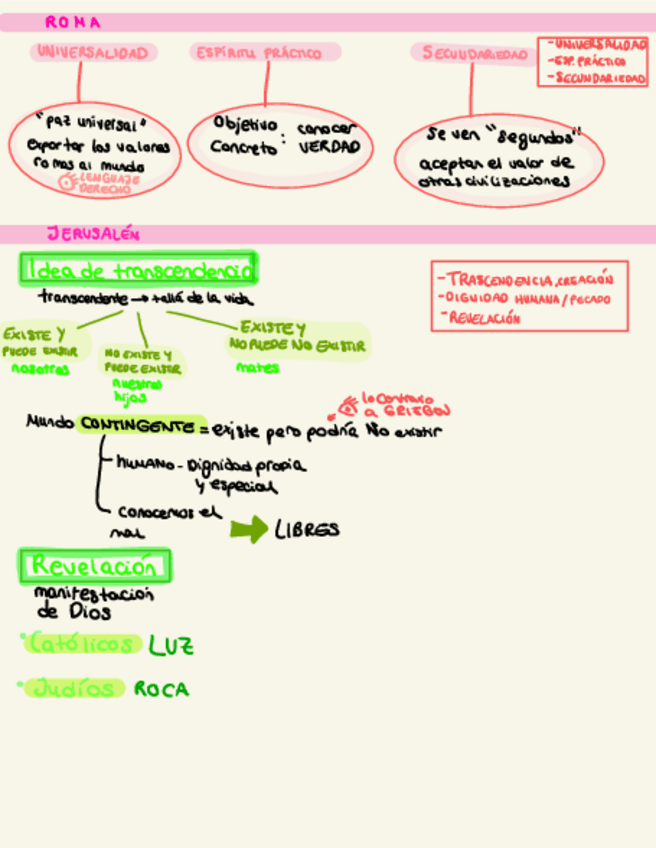 ROMA
UNIVERSALIDAD
ESPÍRITU PRÁCTICO
SECUNDARIEDAD
-UNIVERSALIDAD
-ESP. PRÁCTICO
-SECUNDARIEDAD
"paz universal"
exportar los valores
romas al mundo
LENGUAJE
DERECHO
Objetivo : conocer
Concreto VERDAD
Se ven "segundos"
aceptan el valor de
otras civilizaciones
JERUSALÉN
Idea de transcendencia
transcendente → +allá de la vida
-TRASCENDENCIA, CREACIÓN
-DIGNIDAD HUMANA/PECADO
-REVELACIÓN
EXISTE Y
PUEDE EXISTIR
nosotros
NO EXISTE Y
PUEDE EXISTIR
nuestros
hijos
EXISTE Y
NO PUEDE NO EXISTIR
mates
lo contrario
a GRIEGOS
Mundo CONTINGENTE = existe pero podría No existir
HUMANO - Dignidad propia
y especial
Conocemos el
mal
LIBRES
Revelación
manifestación
de Dios
Católicos LUZ
Judíos ROCA